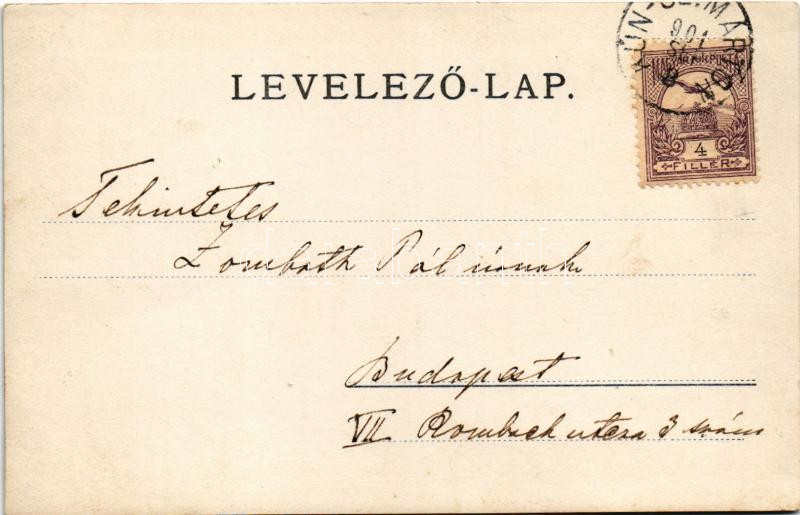 KUN-SZ.MÁRTON
901
LEVELEZŐ-LAP.
MAGYAR KIR. POSTA
4
FILLÉR
Tekintetes
Zombath Pál úrnak
Budapest
VII Rombach utcza 3 szám